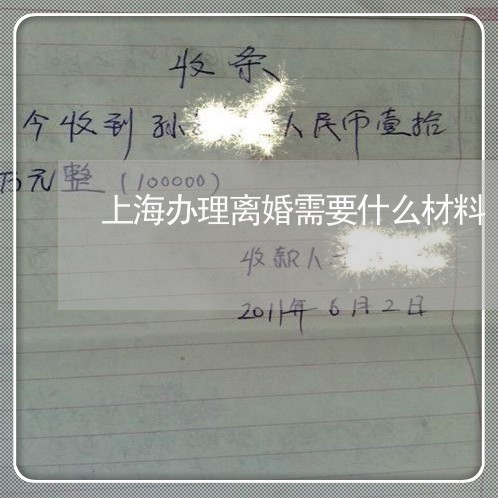 收条
今收到孙 人民币壹拾
万元整(100000)
上海办理离婚需要什么材料
收款人
2011年6月2日